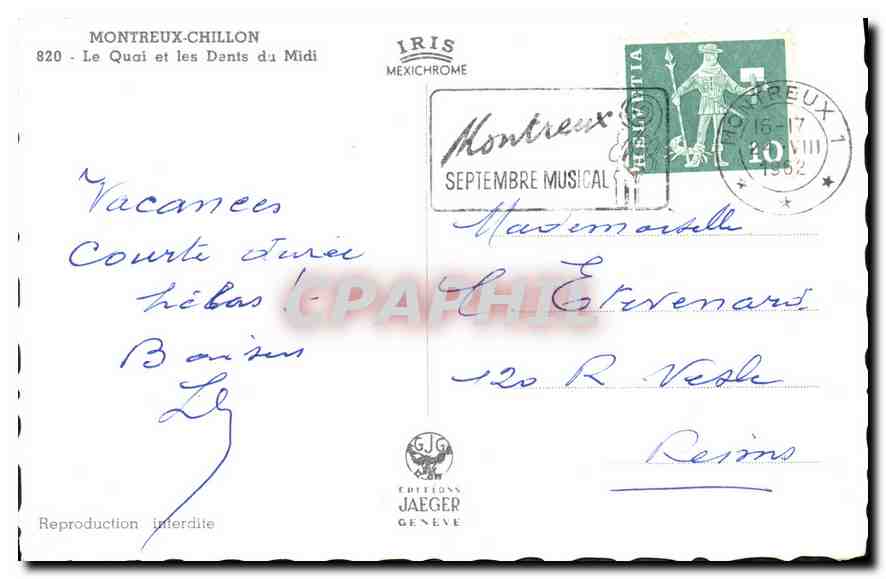 MONTREUX-CHILLON
820 - Le Quai et les Dents du Midi
IRIS
MEXICHROME
HELVETIA
10
Montreux
SEPTEMBRE MUSICAL
MONTREUX 1
16-17
VIII
1962
Vacances
Courte durée
hélas !
Baisers
Mademoiselle
Estvenard
120 R Vesle
Reims
CPAPHIL
GJG
EDITIONS
JAEGER
GENEVE
Reproduction interdite